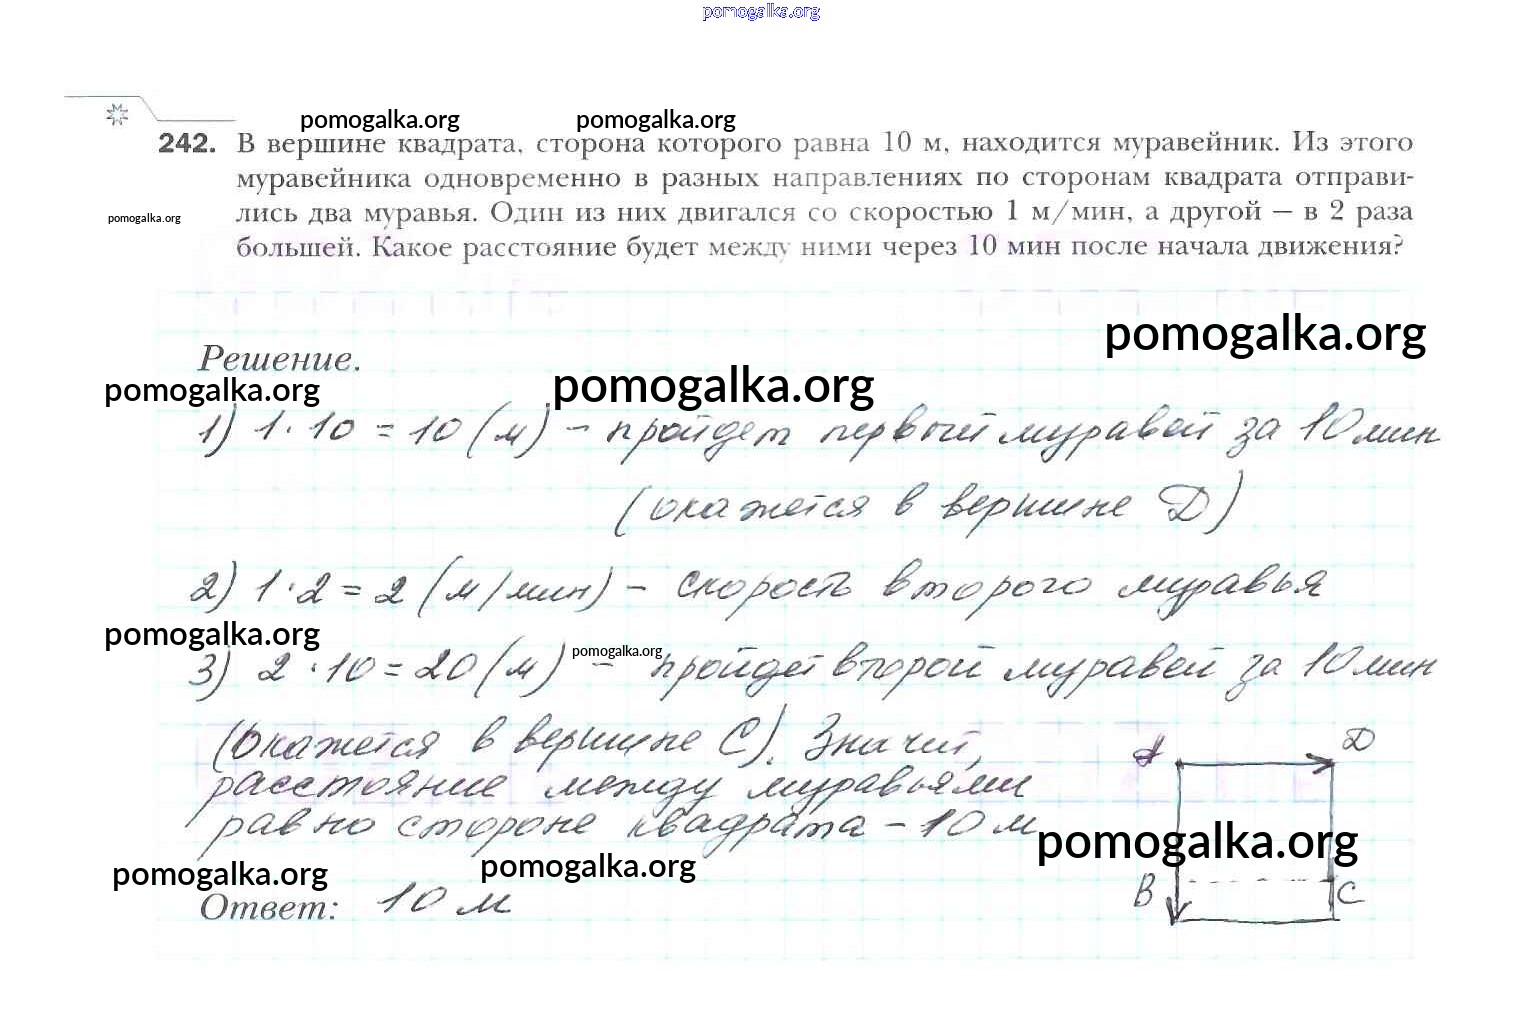 pomogalka.org
pomogalka.org pomogalka.org
242. В вершине квадрата, сторона которого равна 10 м, находится муравейник. Из этого
муравейника одновременно в разных направлениях по сторонам квадрата отправи-
pomogalka.org
лись два муравья. Один из них двигался со скоростью 1 м/мин, а другой — в 2 раза
большей. Какое расстояние будет между ними через 10 мин после начала движения?
pomogalka.org
Решение.
pomogalka.org pomogalka.org
1) 1 · 10 = 10 (м) – пройдет первый муравей за 10 мин
(окажется в вершине D)
2) 1 · 2 = 2 (м/мин) – скорость второго муравья
pomogalka.org
pomogalka.org
3) 2 · 10 = 20 (м) – пройдет второй муравей за 10 мин
(окажется в вершине C). Значит,
расстояние между муравьями
равно стороне квадрата – 10 м
A D
pomogalka.org
B C
pomogalka.org pomogalka.org
Ответ: 10 м